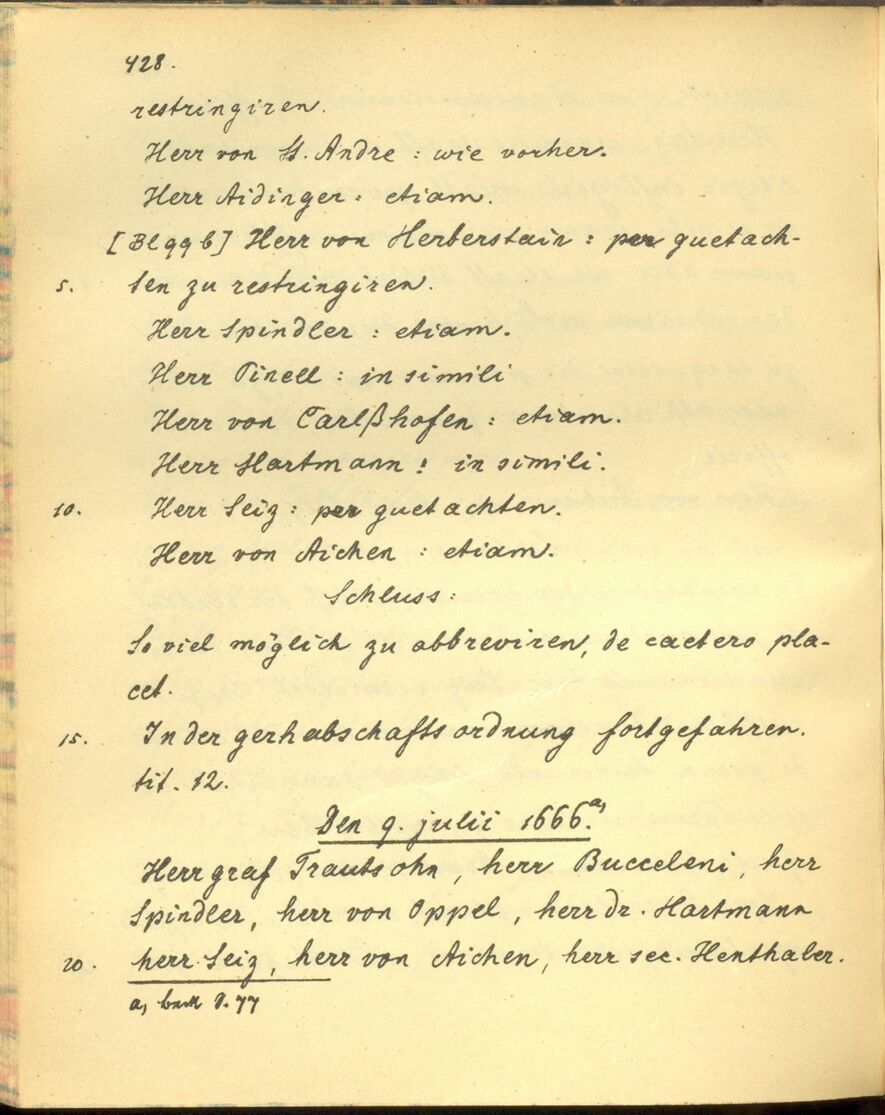 428.
restringiren.
Herr von St. Andre : wie vorher.
Herr Aidinger : etiam.
[Bl 99 b] Herr von Herberstain : per guetach-
5. ten zu restringiren.
Herr Spindler : etiam.
Herr Pinell : in simili
Herr von Carlßhofen : etiam.
Herr Hartmann : in simili.
10. Herr Seiz : per guetachten.
Herr von Aichen : etiam.
Schluss :
So viel möglich zu abbreviren, de caetero pla-
cet.
15. In der gerhabschaftsordnung fortgefahren.
tit. 12.
Den 9. julii 1666. a)
Herr graf Trautsohn, herr Bucceleni, herr
Spindler, herr von Oppel, herr dr. Hartmann
20. herr Seiz, herr von Aichen, herr sec. Henthaler.
a) 77